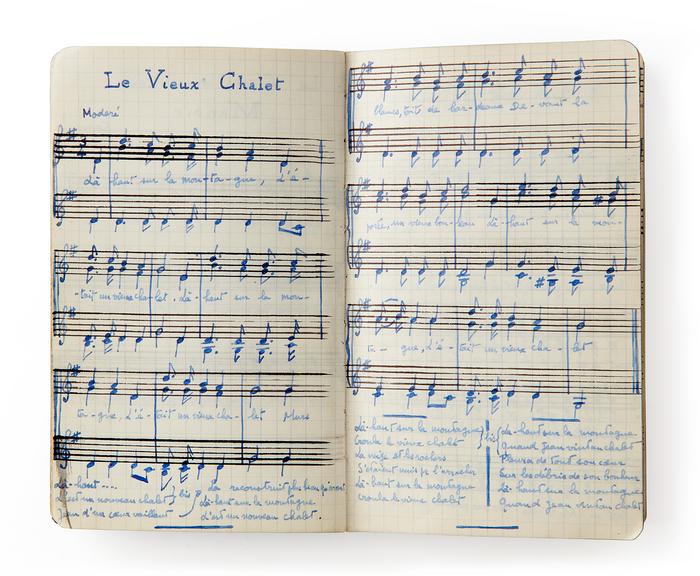 Le Vieux Chalet
Modéré
Là-haut sur la mon-ta-gne, L'é-
-tait un vieux cha-let. Là-haut sur la mon-
ta-gne, L'é-tait un vieux cha-let Murs
Là-haut ....
L'est un nouveau chalet } bis
Jean d'un cœur vaillant
La reconstruit plus beau qu'avant
Là-haut sur la montagne
L'est un nouveau chalet.
blancs, toit de bar-deaux De-vant la
porte, un vieux bou-leau Là-haut sur la mon-
ta-gne, L'é-tait un vieux cha-let
Là-haut sur la montagne } bis
Croula le vieux chalet
La neige et les rochers
S'étaient unis pr l'arracher
Là-haut sur la montagne
Croula le vieux chalet
Là-haut sur la montagne
Quand Jean vint au chalet
Pleura de tout son cœur
Sur les débris de son bonheur
Là-haut sur la montagne
Quand Jean vint au chalet